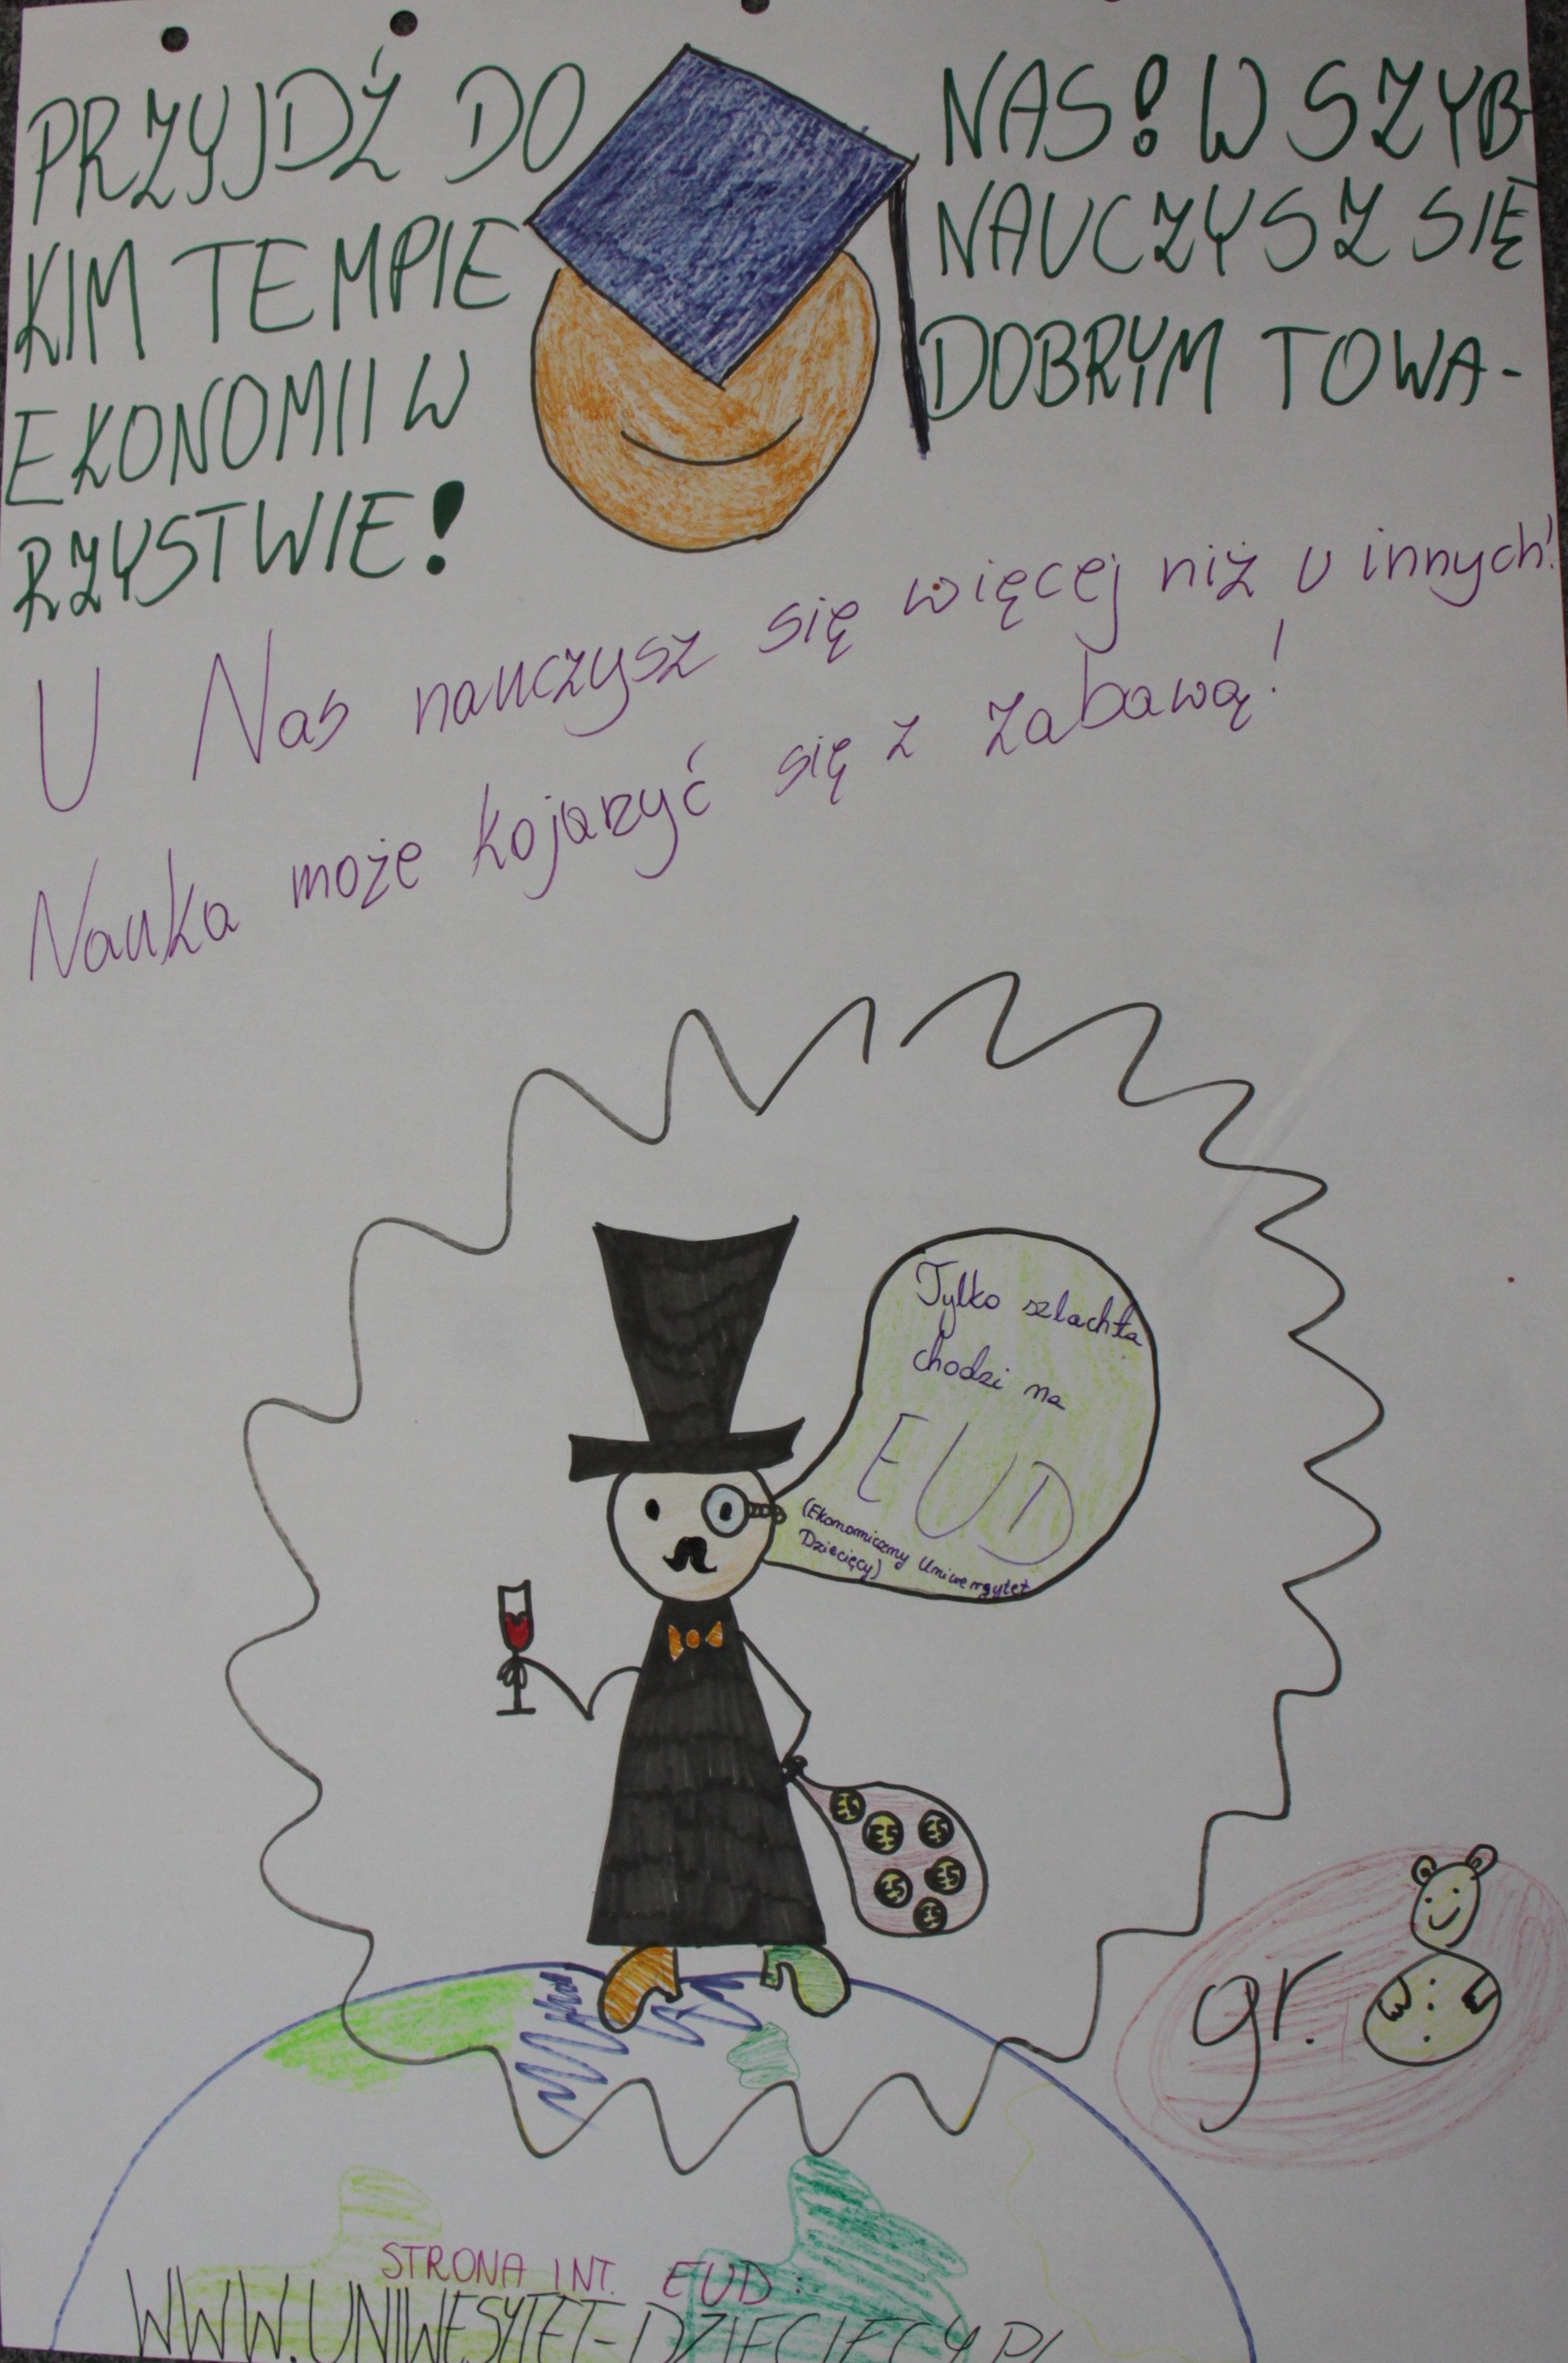 PRZYJDŹ DO NAS! W SZYB-
KIM TEMPIE NAUCZYSZ SIĘ
EKONOMII W DOBRYM TOWA-
RZYSTWIE!
U Nas nauczysz się więcej niż u innych!
Nauka może kojarzyć się z zabawą!
Tylko szlachta
chodzi na
EUD
(Ekonomiczny Uniwersytet
Dziecięcy)
gr.
STRONA INT. EUD:
WWW.UNIWESYTET-DZIECIECY.PL